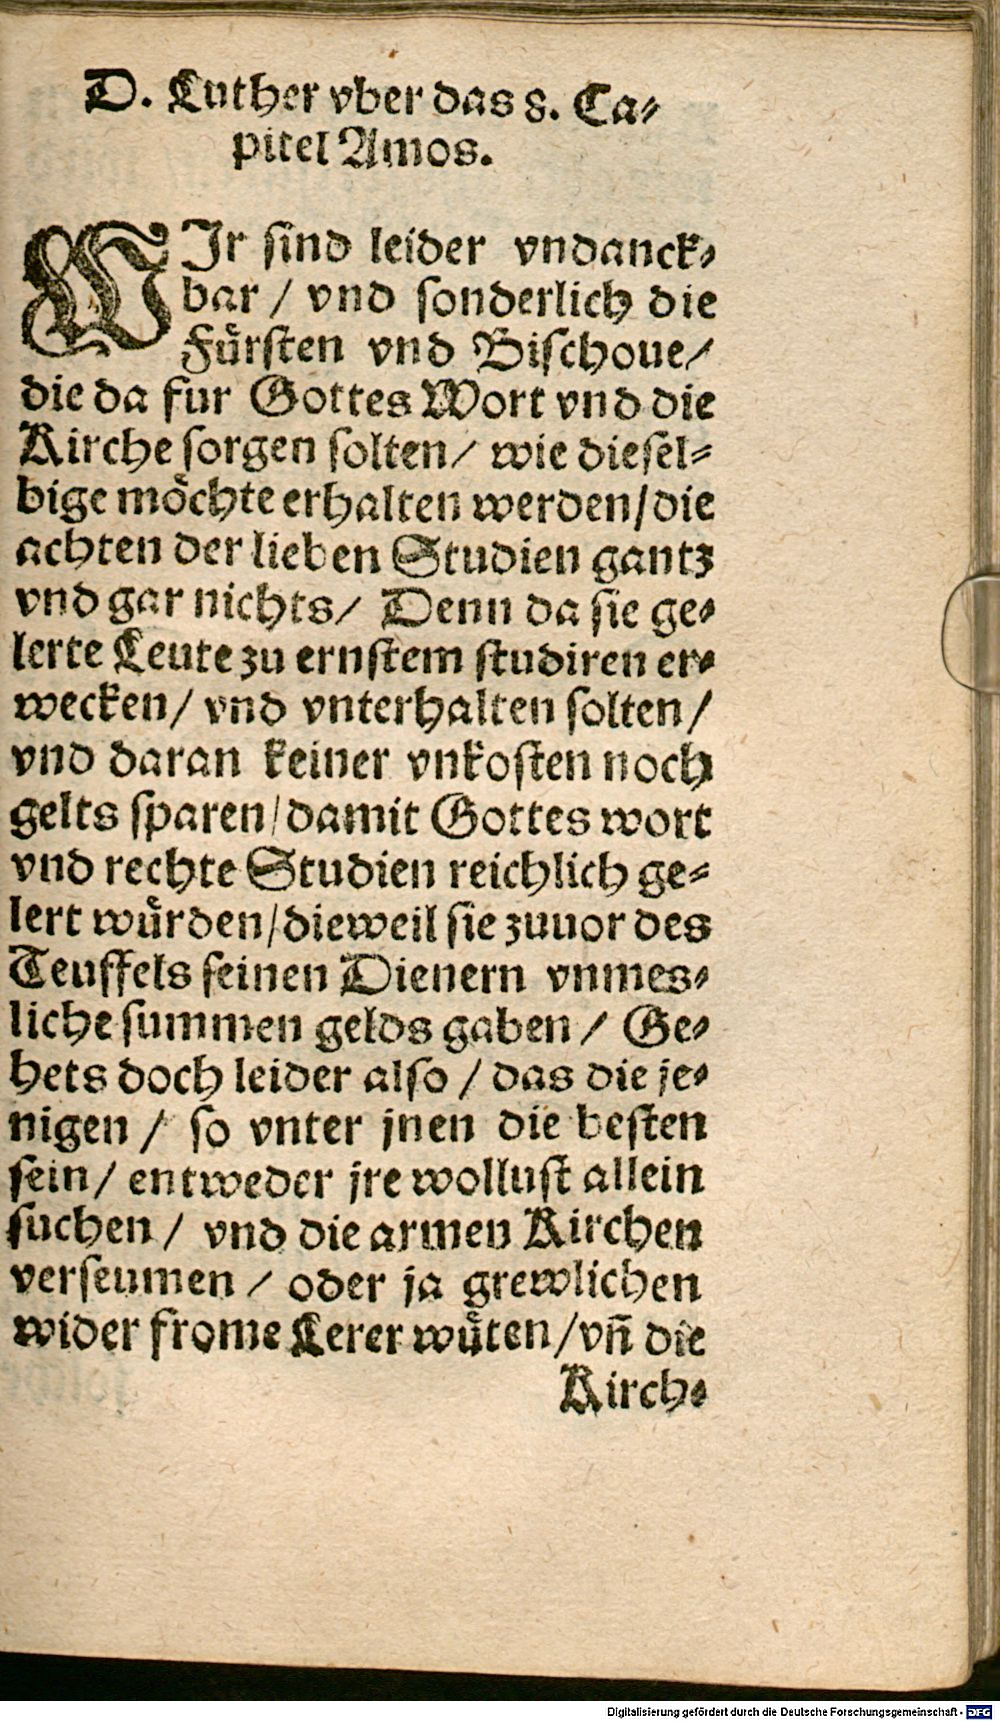 D. Luther vber das 8. Ca-
pitel Amos.
WJr sind leider vndanck-
bar / vnd sonderlich die
Fürsten vnd Bischoue /
die da fur Gottes Wort vnd die
Kirche sorgen solten / wie diesel-
bige möchte erhalten werden / die
achten der lieben Studien gantz
vnd gar nichts / Denn da sie ge-
lerte Leute zu ernstem studiren er-
wecken / vnd vnterhalten solten /
vnd daran keiner vnkosten noch
gelts sparen / damit Gottes wort
vnd rechte Studien reichlich ge-
lert würden / dieweil sie zuuor des
Teuffels seinen Dienern vnmes-
liche summen gelds gaben / Ge-
hets doch leider also / das die je-
nigen / so vnter jnen die besten
sein / entweder jre wollust allein
suchen / vnd die armen Kirchen
verseumen / oder ja grewlichen
wider frome Lerer wüten / vñ die
Kirch-
Digitalisierung gefördert durch die Deutsche Forschungsgemeinschaft - DFG